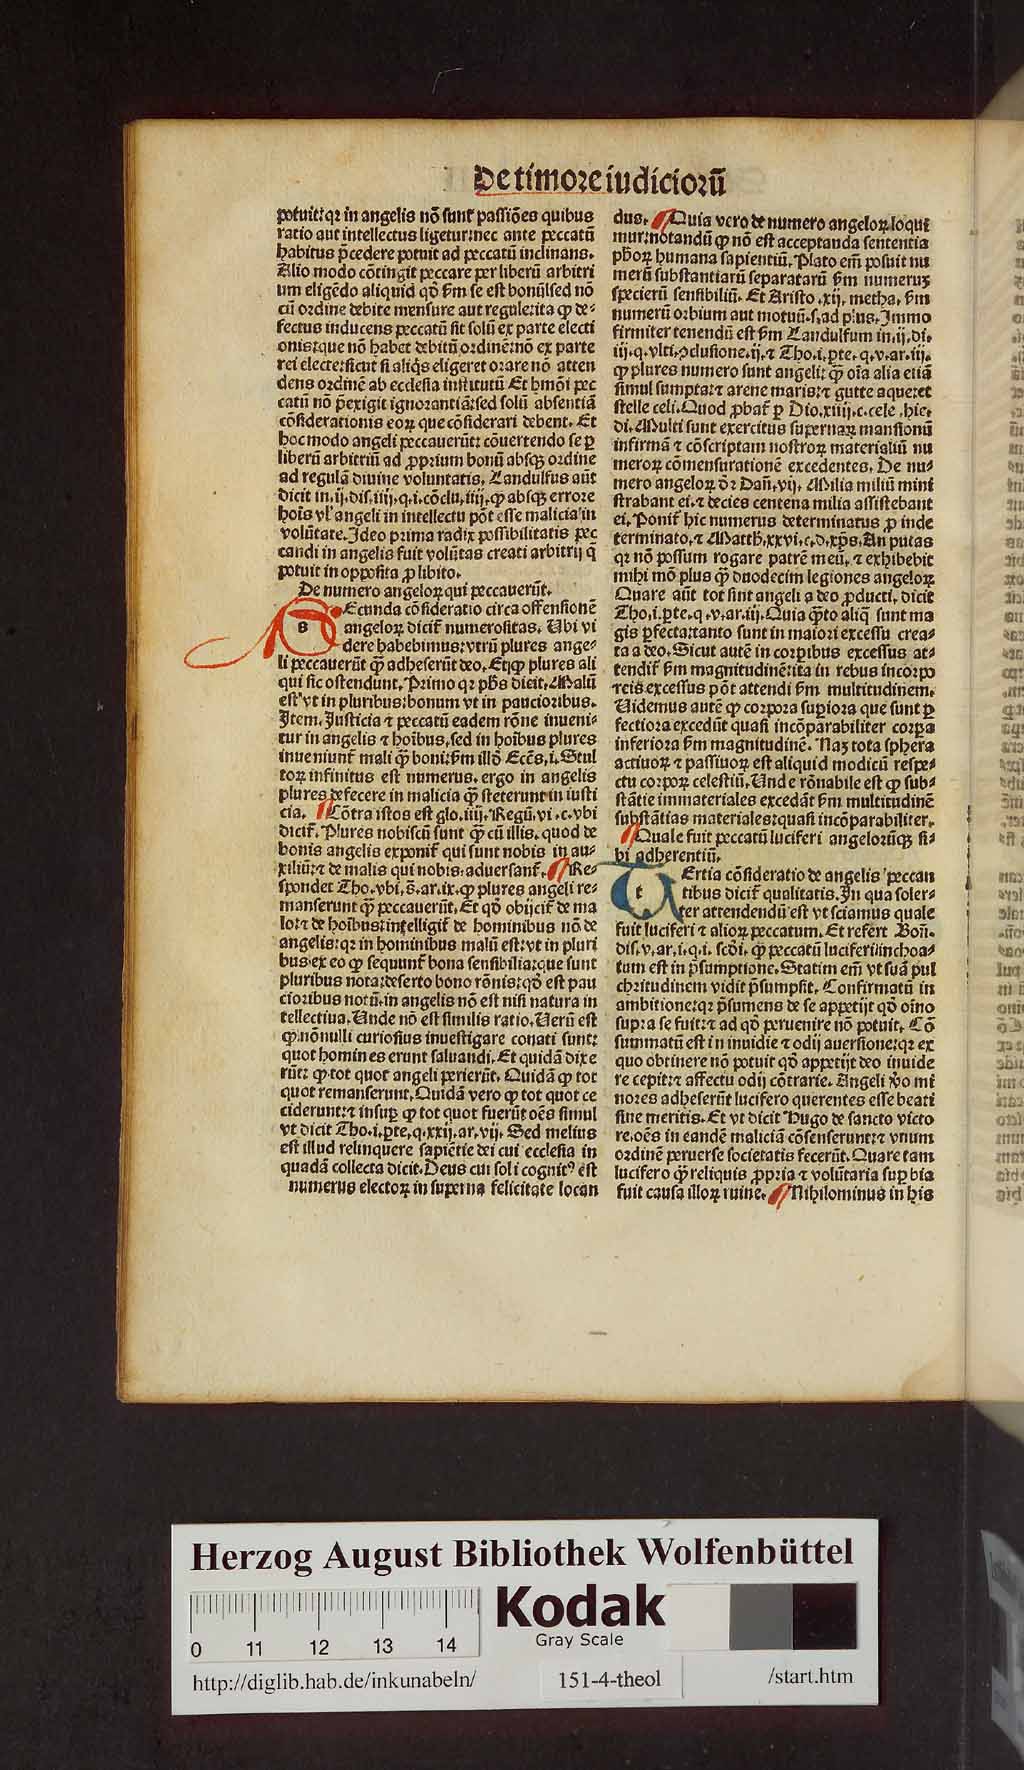 De timore iudicioꝝ
potuit: qꝛ in angelis nō sunt passiōes quibus
ratio aut intellectus ligetur: nec ante peccatū
habitus p̄cedere potuit ad peccatū inclinans.
Alio modo cōtingit peccare per liberū arbitri
um eligēdo aliquid qd̄ ẜm se est bonū: sed nō
cū ordine debite mensure aut regule: ita ꝙ de-
fectus inducens peccatū sit solū ex parte electi
onis: que nō habet debitū ordinē: nō ex parte
rei electe: sicut si aliq̄s eligeret orare nō atten
dens ordinē ab ecclesia institutū Et hmōi pec
catū nō p̄exigit ignorantiā: sed solū absentiā
cōsiderationis eoꝝ que cōsiderari debent. Et
hoc modo angeli peccauerūt: cōuertendo se ꝑ
liberū arbitriū ad ꝓprium bonū absqꝫ ordine
ad regulā diuine voluntatis. Landulfus aūt
dicit in .ij. dis. iiij. q. i. cōclu. iiij. ꝙ absqꝫ errore
hoīs vl' angeli in intellectu pōt esse malicia in
volūtate. Ideo prima radix possibilitatis pec
candi in angelis fuit volūtas creati arbitrij q̄
potuit in opposita ꝓ libito.
De numero angeloꝝ qui peccauerūt.
s Ecunda cōsideratio circa offensionē
angeloꝝ dicit̄ numerositas. Ubi vi
dere habebimus: vtrū plures ange-
li peccauerūt q̄ꝫ adheserūt deo. Et ꝙ plures ali
qui sic ostendunt. Primo qꝛ phs̄ dicit. Malū
est vt in pluribus: bonum vt in paucioribus.
Item. Justicia ⁊ peccatū eadem rōne inueni-
tur in angelis ⁊ hoībus, sed in hoībus plures
inueniunt̄ mali q̄ꝫ boni: ẜm illd̄ Eccs̄. i. Stul
toꝝ infinitus est numerus. ergo in angelis
plures defecere in malicia q̄ꝫ steterunt in iusti
cia. Cōtra istos est glo. iiij. Regū. vi. c. vbi
dicit̄. Plures nobiscū sunt q̄ꝫ cū illis. quod de
bonis angelis exponit̄ qui sunt nobis in au-
xiliū: ⁊ de malis qui nobis aduersant̄. Re-
spondet Tho. vbi. s̄. ar. ix. ꝙ plures angeli re-
manserunt q̄ꝫ peccauerūt. Et qd̄ obijcit̄ de ma
lo: ⁊ de hoībus: intelligit̄ de hominibus nō de
angelis: qꝛ in hominibus malū est: vt in pluri
bus ex eo ꝙ sequunt̄ bona sensibilia: que sunt
pluribus nota: deserto bono rōnis: qd̄ est pau
cioribus notū. in angelis nō est nisi natura in
tellectiua. Unde nō est similis ratio. Verū est
ꝙ nōnulli curiosius inuestigare conati sunt:
quot homines erunt saluandi. Et quidā dixe
rūt: ꝙ tot quot angeli perierūt. Quidā ꝙ tot
quot remanserunt. Quidā vero ꝙ tot quot ce
ciderunt: ⁊ insuꝑ ꝙ tot quot fuerūt oēs simul
vt dicit Tho. i. ꝑte. q. xxij. ar. vij. Sed melius
est illud relinquere sapiētie dei cui ecclesia in
quadā collecta dicit. Deus cui soli cognit⁹ est
numerus electoꝝ in superna felicitate locan
dus. Quia vero de numero angeloꝝ loqui
mur: notandū ꝙ nō est acceptanda sententia
phoꝝ humana sapientiū. Plato em̄ posuit nu
merū substantiarū separatarū ẜm numerꝫ
specierū sensibiliū. Et Aristo. xij. metha. ẜm
numerū orbium aut motuū. s. ad plus. Immo
firmiter tenendū est ẜm Landulfum in .ij. di.
iij. q. vlti. ꝯclusione. ij. ⁊ Tho. i. ꝑte. q. v. ar. iij.
ꝙ plures numero sunt angeli: q̄ꝫ oīa alia etiā
simul sumpta: ⁊ arene maris: ⁊ gutte aque: et
stelle celi. Quod ꝓbat̄ ꝑ Dio. xiiij. c. cele. hie.
di. Multi sunt exercitus supernaꝝ mansionū
infirmā ⁊ cōscriptam nostroꝝ materialiū nu
meroꝝ cōmensurationē excedentes. De nu-
mero angeloꝝ dr̄ Dan̄. vij. Milia miliū mini
strabant ei. ⁊ decies centena milia assistebant
ei. Ponit̄ hic numerus determinatus ꝓ inde
terminato. ⁊ Matth̄. xxvi. c. d. xp̄s. An putas
qꝛ nō possum rogare patrē meū. ⁊ exhibebit
mihi mō plus q̄ꝫ duodecim legiones angeloꝝ
Quare aūt tot sint angeli a deo ꝓducti. dicit
Tho. i. ꝑte. q. v. ar. iij. Quia q̄ꝫto aliq̄ sunt ma
gis ꝑfecta: tanto sunt in maiori excessu crea-
ta a deo. Sicut autē in corꝑibus excessus at-
tendit̄ ẜm magnitudinē: ita in rebus incorpo
reis excessus pōt attendi ẜm multitudinem.
Videmus autē ꝙ corpora suꝑiora que sunt ꝑ
fectiora excedūt quasi incōparabiliter corꝑa
inferiora ẜm magnitudinē. Naꝫ tota sphera
actiuoꝝ ⁊ passiuoꝝ est aliquid modicū respe-
ctu corpoꝝ celestiū. Unde rōnabile est ꝙ sub-
stātie immateriales excedāt ẜm multitudinē
substātias materiales: quasi incōparabiliter.
Quale fuit peccatū luciferi angelorūqꝫ si-
bi adherentiū.
t Ertia cōsideratio de angelis peccan
tibus dicit̄ qualitatis. In qua soler-
ter attendendū est vt sciamus quale
fuit luciferi ⁊ alioꝝ peccatum. Et refert Bon̄.
dis. v. ar. i. q. i. scd̄i. ꝙ peccatū luciferi inchoa-
tum est in p̄sumptione. Statim em̄ vt suā pul
chritudinem vidit p̄sumpsit. Confirmatū in
ambitione: qꝛ p̄sumens de se appetijt qd̄ oīno
supra se fuit: ⁊ ad qd̄ peruenire nō potuit. Cō
summatū est in inuidie ⁊ odij auersione: qꝛ ex
quo obtinere nō potuit qd̄ appetijt deo inuide
re cepit: ⁊ affectu odij cōtrarie. Angeli v̄o mi
nores adheserūt lucifero querentes esse beati
sine meritis. Et vt dicit Hugo de sancto victo
re. oēs in eandē maliciā cōsenserunt: ⁊ vnum
ordinē peruerse societatis fecerūt. Quare tam
lucifero q̄ꝫ reliquis ꝓpria ⁊ volūtaria suꝑbia
fuit causa illoꝝ ruine. Nihilominus in his
Herzog August Bibliothek Wolfenbüttel
0 11 12 13 14
Kodak
Gray Scale
http://diglib.hab.de/inkunabeln/ 151-4-theol /start.htm